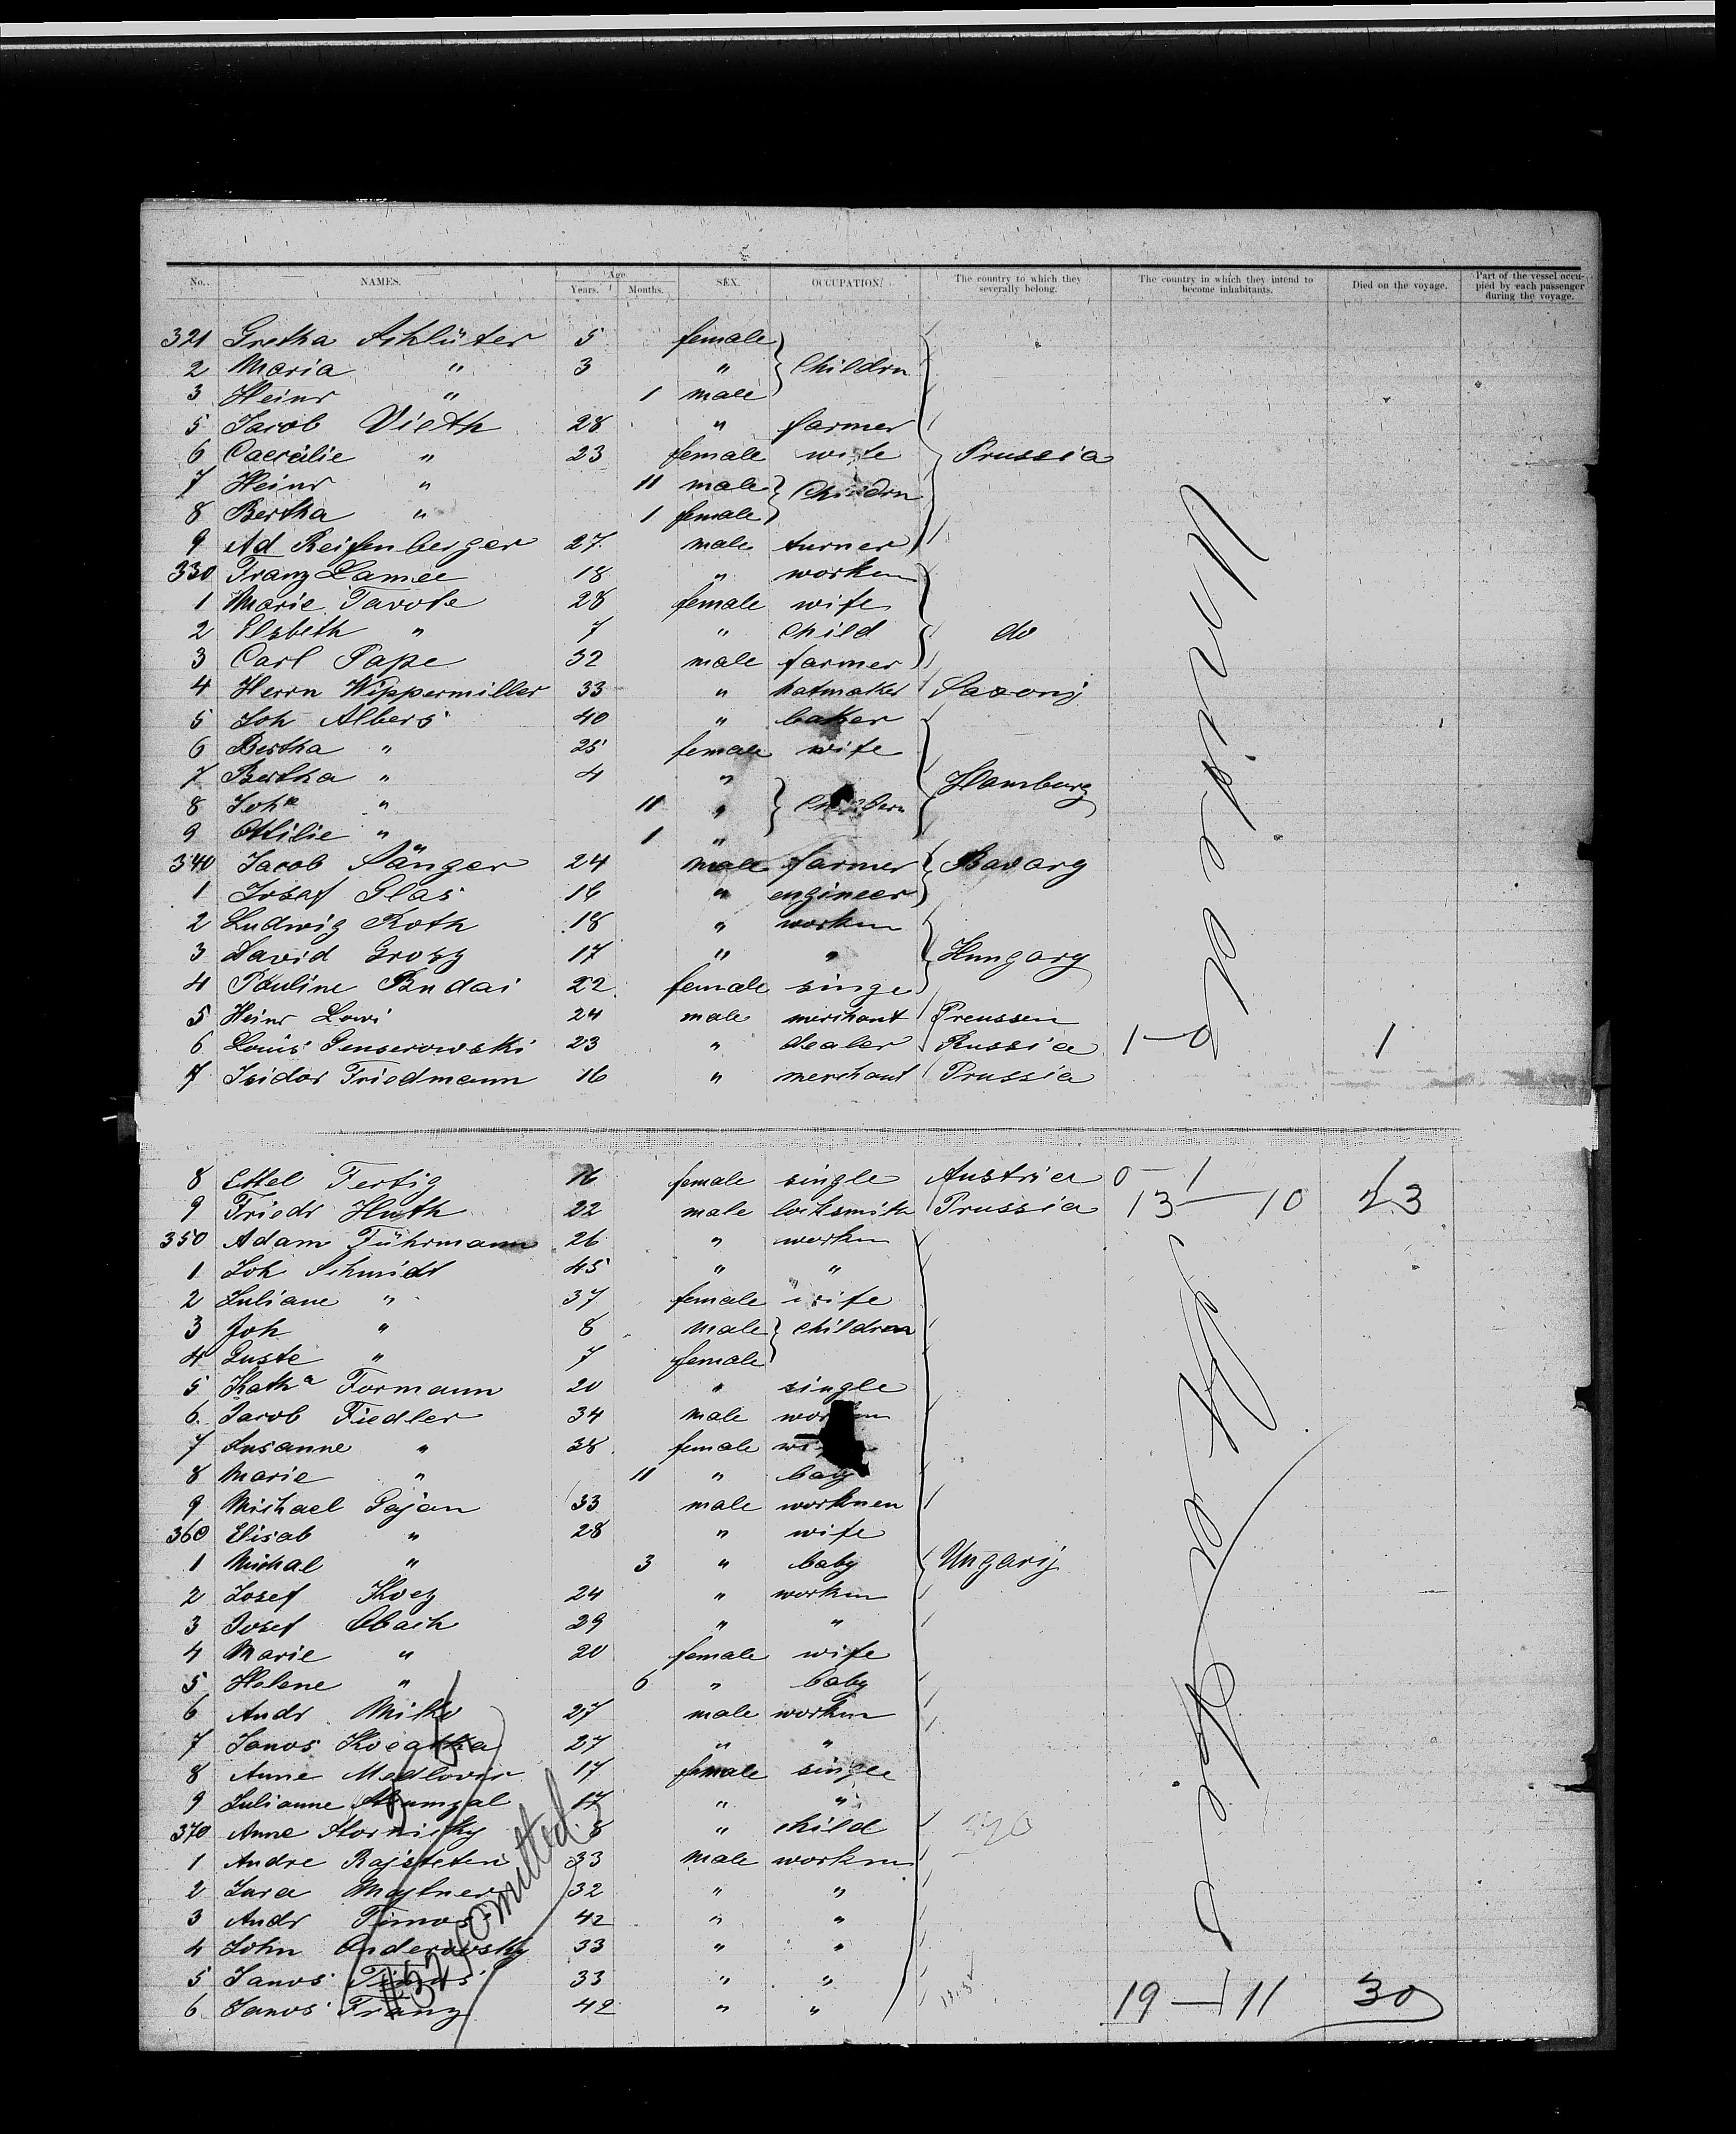 No. NAMES. Age Years. Months. SEX. OCCUPATION. The country to which they severally belong. The country in which they intend to become inhabitants. Died on the voyage. Part of the vessel occupied by each passenger during the voyage.
321 Gretha Schlüter 5 female
2 Maria " 3 " Childrn
3 Heinr " 1 male
5 Jacob Vieth 28 " farmer
6 Caecilie " 23 female wife Prussia
7 Heinr " 11 male Childrn
8 Bertha " 1 female
9 Ad Reifenberger 27 male turner
330 Franz Lamee 18 " workm
1 Marie Tavote 28 female wife
2 Elsbeth " 7 " Child do
3 Carl Pape 32 male farmer
4 Herrn Wippermiller 33 " hatmaker Saxony
5 Joh Albers 40 " baker
6 Bertha " 25 female wife
7 Bertha " 4 " Hamburg
8 Joha " 11 "
9 Ottilie " 1 "
340 Jacob Sänger 24 male farmer Bavary
1 Josef Glas 16 " engineer
2 Ludwig Roth 18 " workm
3 David Grosz 17 " " Hungary
4 Pauline Budai 22 female singe
5 Heinr Lowi 24 male merchant Preussen
6 Louis Senserowski 23 " dealer Russia 1-0 1
7 Isidor Friedmann 16 " merchant Prussia
8 Ettel Fertig 16 female single Austria 0-1 1
9 Friedr Huth 22 male locksmith Prussia 13-10 23
350 Adam Führmann 26 " workm
1 Joh Schmidt 45 " "
2 Juliane " 37 female wife
3 Joh " 8 male children
4 Guste " 7 female
5 Katha Formann 20 " single
6 Jacob Fiedler 34 male
7 Susanne " 38 female
8 Marie " 11 " baby
9 Michael Pajan 33 male workmen
360 Elisab " 28 " wife
1 Michal " 3 " baby Ungarij
2 Josef Koez 24 " workm
3 Josef Obach 29 " "
4 Marie " 20 female wife
5 Helene " 6 " baby
6 Andr Mitko 27 male workm
7 Janos 27 " "
8 Anne Medlovir 17 female single
9 Julianne 17 " "
370 Anne 8 " child
1 Andre Rajsteten 33 male workm
2 Jura Majtner 32 " "
3 Andr Timos 42 " "
4 John Onderovsky 33 " "
5 Janos 33 " "
6 Janos Franz 42 " " 19-11 30
#324 omitted.